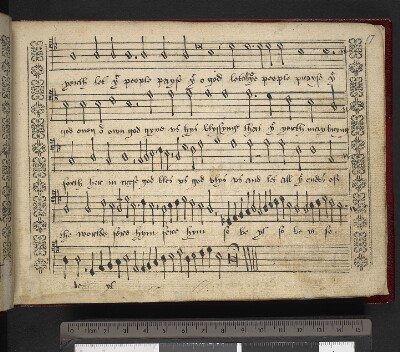 yerth let yͤ people prayse yͤ o god let the people prayse yͤ
god owen o own god gyve us hys blyssynge then yͤ yerth may bryng
forth her in crese god bles us god blys us and let all yͤ endes off
the worlde fere hym fere hym so be yt so be yt so
be yt